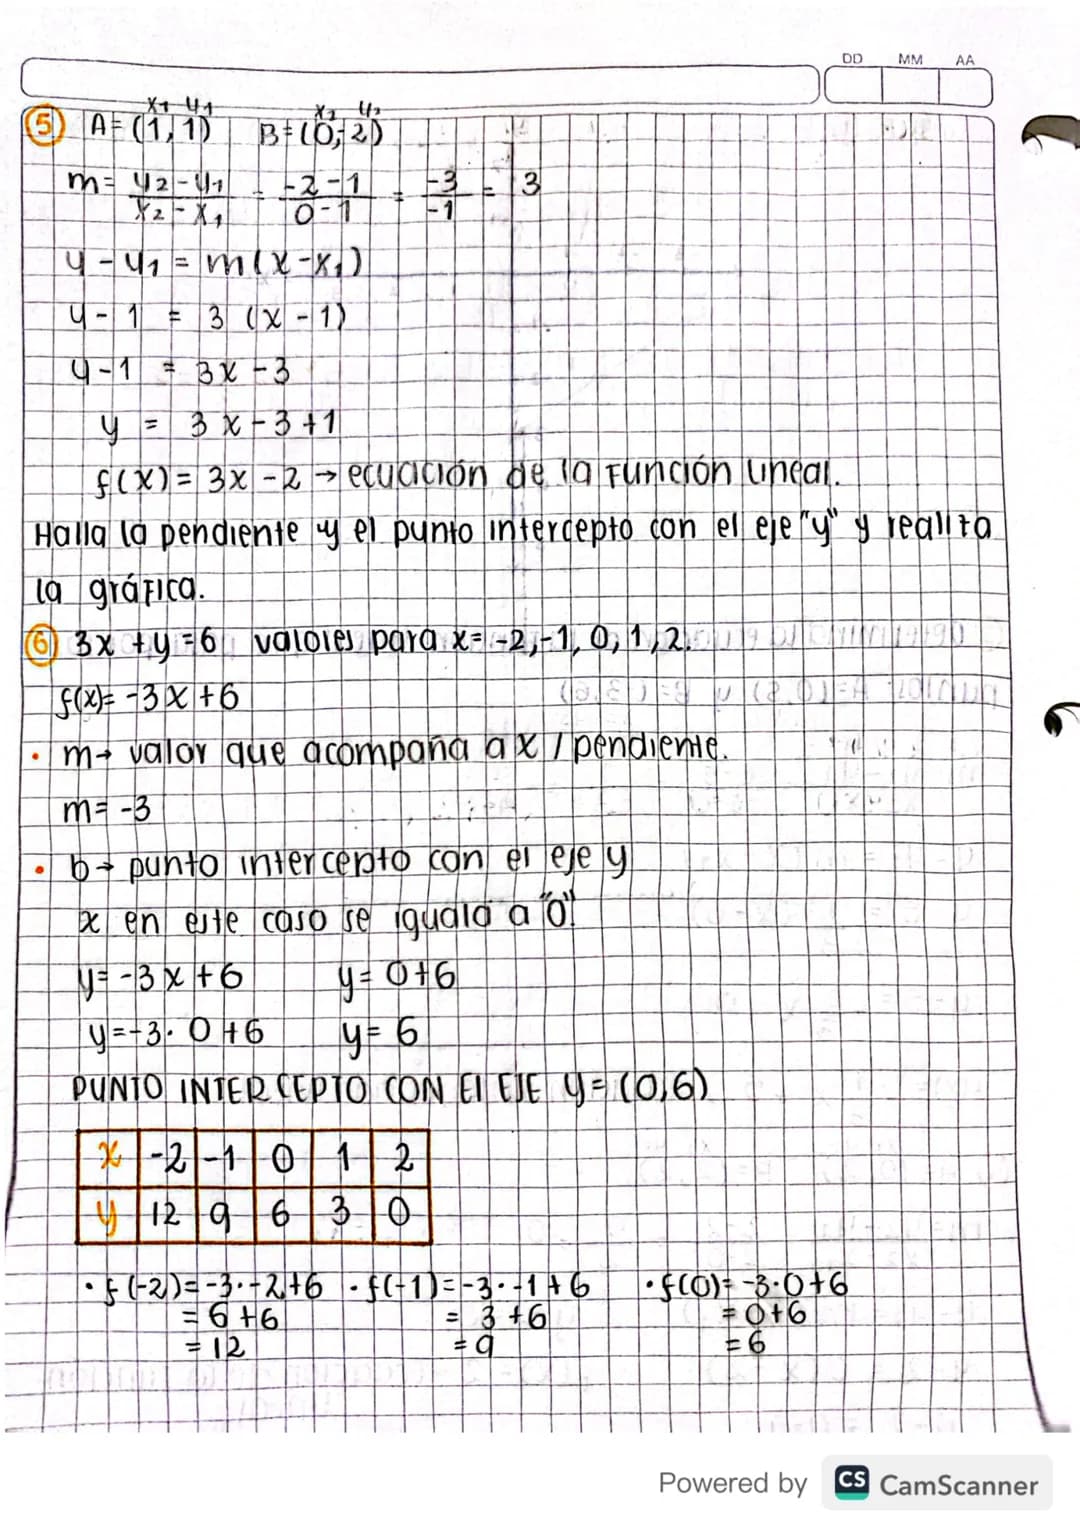 DD MM AA
x1 y1 x2 y2
5 A=(1,1) B=(0,-2)
m= y2-y1/x2-x1 = -2-1/0-1 = -3/-1 = 3
y-y1 = m(x-x1)
y-1 = 3(x-1)
y-1 = 3x-3
y = 3x-3+1
f(x)= 3x-2 → ecuación de la función lineal.
Halla la pendiente y el punto intercepto con el eje "y" y realiza
la gráfica.
6 3x+y=6 valores para x=-2,-1,0,1,2.
f(x)= -3x+6
• m→ valor que acompaña a x / pendiente.
m= -3
• b→ punto intercepto con el eje y
x en este caso se iguala a "0".
y= -3x+6 y= 0+6
y=-3·0+6 y= 6
PUNTO INTERCEPTO CON El EJE y=(0,6)
x -2 -1 0 1 2
y 12 9 6 3 0
• f(-2)=-3·-2+6 • f(-1)=-3·-1+6 • f(0)= -3·0+6
= 6+6 = 3+6 = 0+6
= 12 = 9 = 6
Powered by CS CamScanner